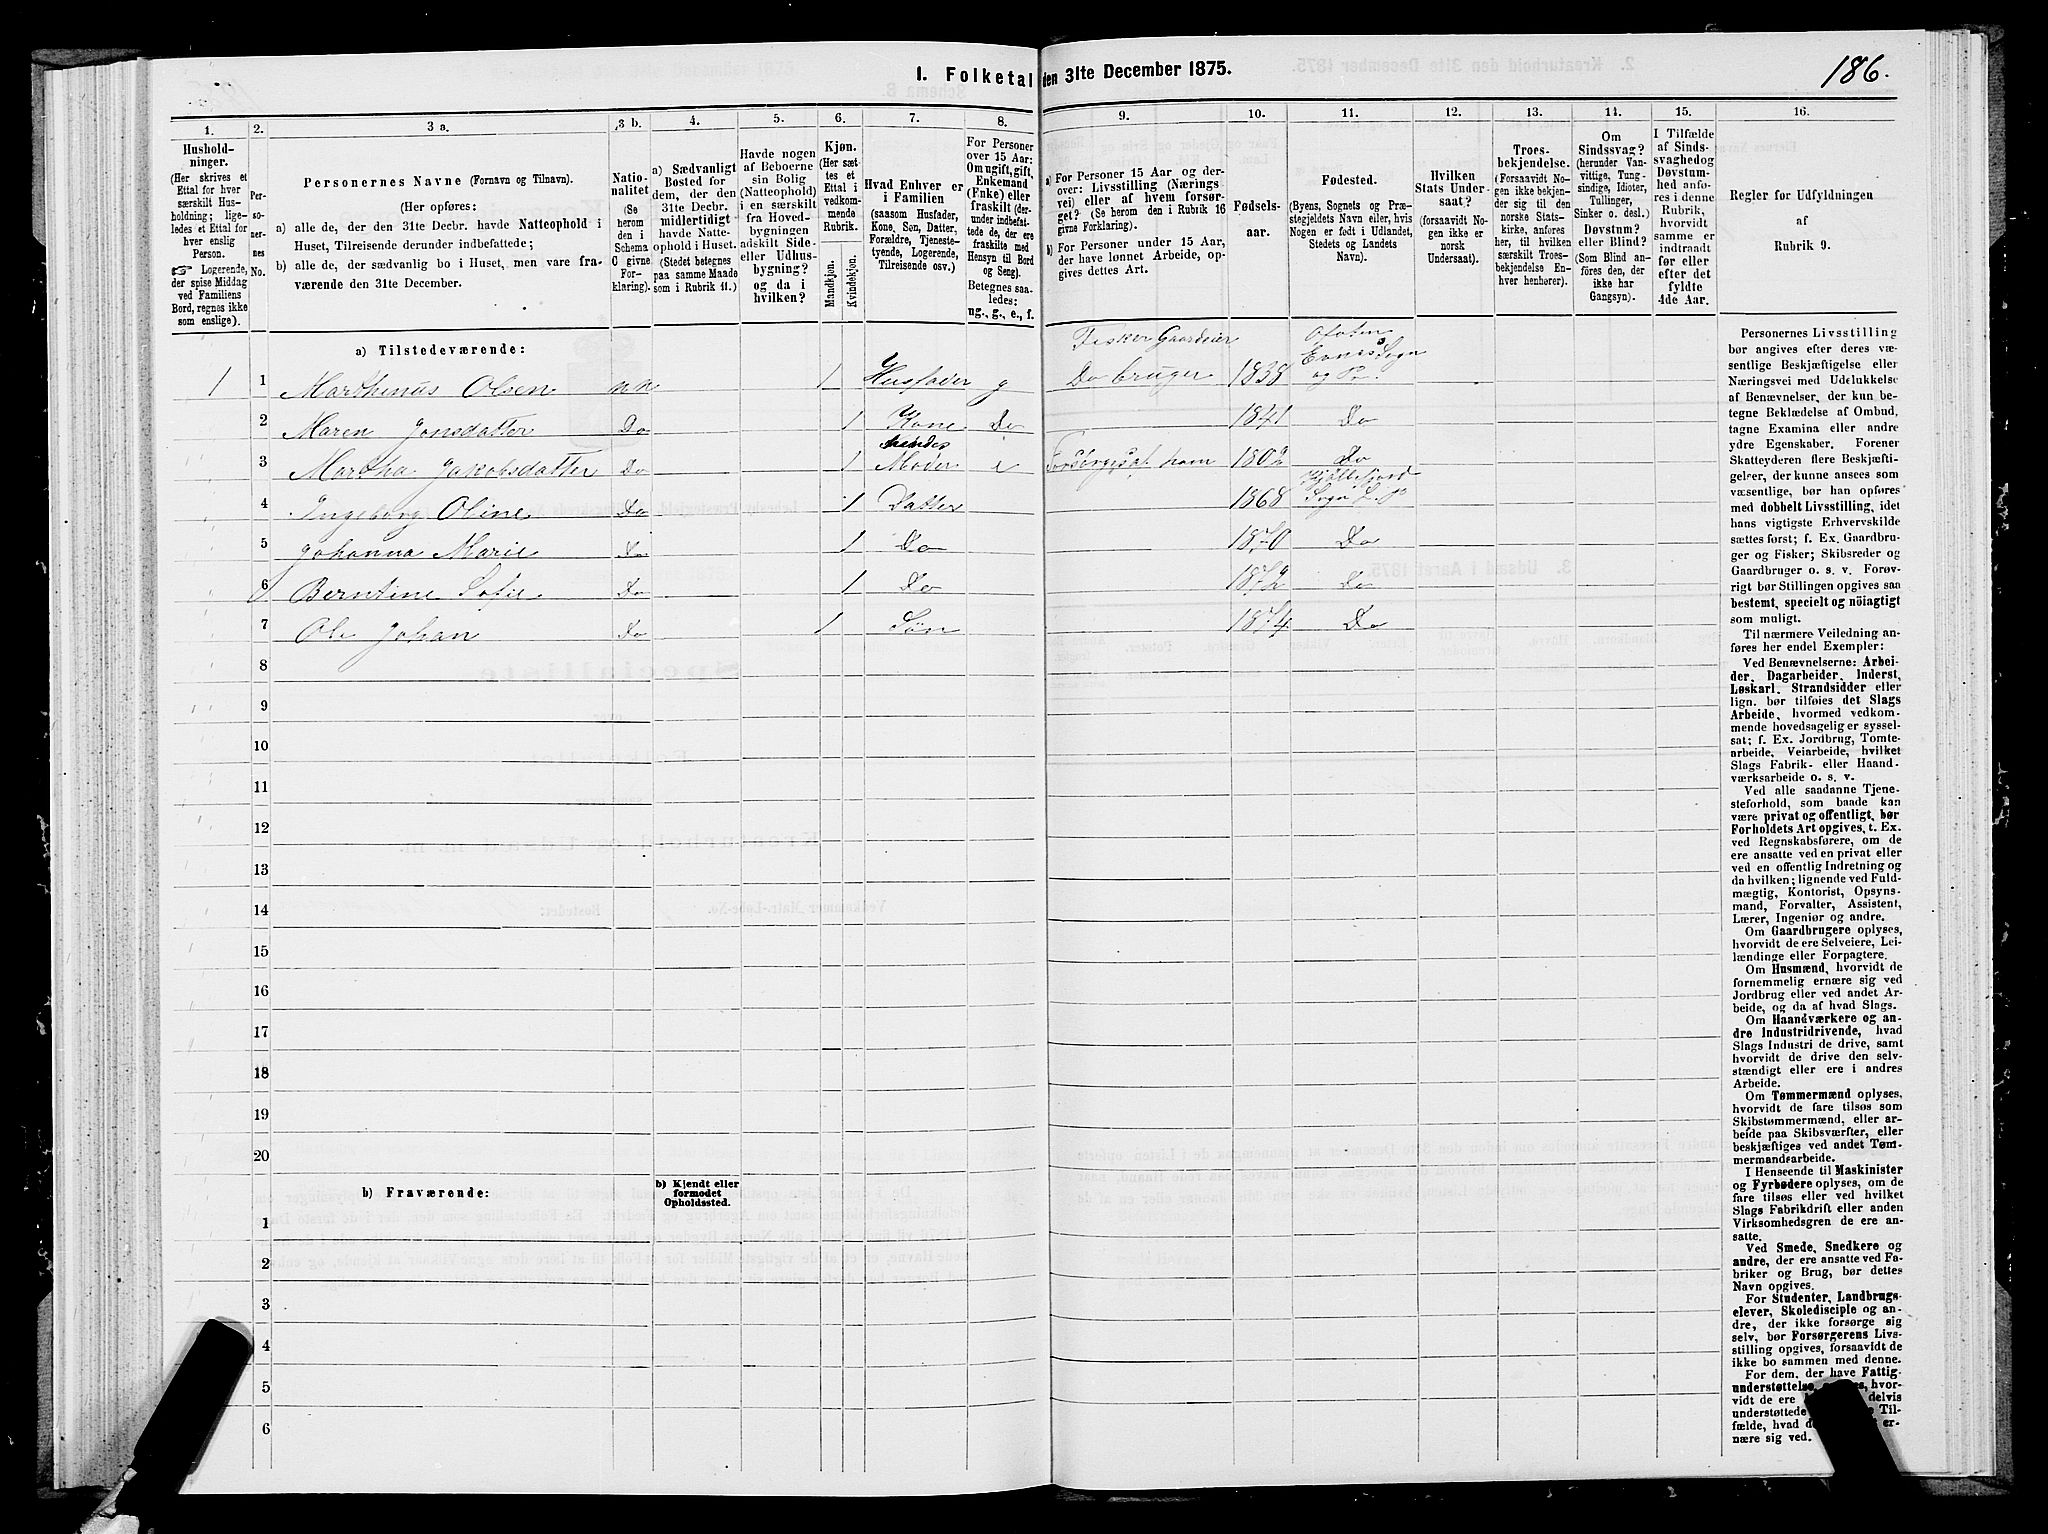 I. Folketal den 31te December 1875.
186.
1.
Hushold-
ninger.
(Her skrives et
Ettal for hver
særskilt Hus-
holdning; lige-
ledes et Ettal for
hver enslig
Person.
☞ Logerende,
der spise Middag
ved Familiens
Bord, regnes ikke
som enslige).
2.
Per-
so-
ner-
nes
No.
3 a.
Personernes Navne (Fornavn og Tilnavn).
(Her opføres:
a) alle de, der den 31te Decbr. havde Natteophold i
Huset, Tilreisende derunder indbefattede;
b) alle de, der sædvanlig bo i Huset, men vare fra-
værende den 31te December.
3 b.
Natio-
nalitet
(Se
herom
den i
Schema
C givne
For-
klaring).
4.
a) Sædvanligt
Bosted for
dem, der den
31te Decbr.
midlertidigt
havde Natte-
ophold i Huset.
(Stedet betegnes
paa samme Maade
som i Rubrik 11.)
5.
Havde nogen
af Beboerne
sin Bolig
(Natteophold)
i en særskilt
fra Hoved-
bygningen
adskilt Side-
eller Udhus-
bygning?
og da i
hvilken?
6.
Kjøn.
(Her sæt-
tes et
Ettal i
vedkom-
mende
Rubrik.
Mandkjøn.
Kvindekjøn.
7.
Hvad Enhver er
i Familien
(saasom Husfader,
Kone, Søn, Datter,
Forældre, Tjeneste-
tyende, Logerende,
Tilreisende osv.)
8.
For Personer
over 15 Aar:
Om ugift, gift,
Enkemand
(Enke) eller
fraskilt (der-
under indbefat-
tede de, der ere
fraskilte med
Hensyn til Bord
og Seng).
Betegnes saa-
ledes:
ug., g., e., f.
9.
a) For Personer 15 Aar og der-
over: Livsstilling (Nærings
vei) eller af hvem forsør-
get? (Se herom den i Rubrik 16
givne Forklaring).
b) For Personer under 15 Aar,
der have lønnet Arbeide, op-
gives dettes Art.
10.
Fødsels-
aar.
11.
Fødested.
(Byens, Sognets og Præ-
stegjeldets Navn eller, hvis
Nogen er født i Udlandet,
Stedets og Landets
Navn).
12.
Hvilken
Stats Under-
saat?
(forsaavidt No-
gen ikke er
norsk
Undersaat).
13.
Troes-
bekjendelse.
(Forsaavidt No-
gen ikke bekjen-
der sig til den
norske Stats-
kirke, anføres
her, til hvilken
særskilt Troes-
bekjendelse En-
hver henhører).
14.
Om
Sindssvag?
(herunder Van-
vittige, Tung-
sindige, Idioter,
Tullinger,
Sinker o. desl.)
Døvstum?
eller Blind?
(Som Blind an-
føres den, der
ikke har
Gangsyn).
15.
I Tilfælde
af Sinds-
svaghedog
Døvstum-
hed anfø-
res i denne
Rubrik,
hvorvidt
samme er
indtraadt
før eller
efter det
fyldte
4de Aar.
16.
Regler for Udfyldningen
af
Rubrik 9.
a) Tilstedeværende:
Fisker Gaard Ofoten
Evnes Sogn
1 1 Marthinus Olsen nn 1 Husfader g Do bruger 1838 og Pr.
2 Maren Jonsdatter Do 1 Kone Do 1841 Do
hendes
3 Martha Jakobsdatter Do 1 Moder e Forsørges af ham 1802 Do
Kjøllefjord
4 Ingeborg Oline Do 1 Datter 1868 Sogn
5 Johanna Marie Do 1 Do 1870 Do
6 Berntine Sofie Do 1 Do 1872 Do
7 Ole Johan Do 1 Søn 1874 Do
8
9
10
11
12
13
14
15
16
17
18
19
20
b) Fraværende:
b) Kjendt eller
formodet
Opholdssted.
1
2
3
4
5
6
Personernes Livsstilling
bør angives efter deres væ-
sentlige Beskjæftigelse eller
Næringsvei med Udelukkelse
af Benævnelser, der kun be-
tegne Beklædelse af Ombud,
tagne Examina eller andre
ydre Egenskaber. Forener
Skatteyderen flere Beskjæfti-
gelser, der kunne ansees som
væsentlige, bør han opføres
med dobbelt Livsstilling, idet
hans vigtigste Erhvervskilde
sættes først; f. Ex. Gaardbru-
ger og Fisker; Skibsreder og
Gaardbruger o. s. v. Forøv-
rigt bør Stillingen opgives saa
bestemt, specielt og nöiagtigt
som muligt.
Til nærmere Veiledning an-
føres her endel Exempler:
Ved Benævnelserne: Arbei-
der, Dagarbeider, Inderst,
Løskarl, Strandsidder eller
lign. bør tilføies det Slags
Arbeide, hvormed vedkom-
mende hovedsagelig er syssel-
sat; f. Ex. Jordbrug, Tomte-
arbeide, Veiarbeide, hvilket
Slags Fabrik- eller Haand-
værksarbeide o. s. v.
Ved alle saadanne Tjene-
steforhold, som baade kan
være privat og offentligt, bør
Forholdets Art opgives, t. Ex.
ved Regnskabsførere, om de
ere ansatte ved en privat eller
ved en offentlig Indretning og
da hvilken; lignende ved Fuld-
mægtig, Kontorist, Opsyns-
mand, Forvalter, Assistent,
Lærer, Ingeniør og andre.
Om Gaardbrugere oplyses,
hvorvidt de ere Selveiere, Lei-
lændinge eller Forpagtere.
Om Husmænd, hvorvidt de
fornemmelig ernære sig ved
Jordbrug eller ved andet Ar-
beide, og da af hvad Slags.
Om Haandværkere og an-
dre Industridrivende, hvad
Slags Industri de drive, samt
hvorvidt de drive den selv-
stændigt eller ere i andres
Arbeide.
Om Tømmermænd oplyses,
hvorvidt de fare tilsøs som
Skibstømmermænd, eller ar-
beide paa Skibsværfter, eller
beskjæftiges ved andet Tøm-
mermandsarbeide.
I Henseende til Maskinister
og Fyrbødere oplyses, om de
fare tilsøs eller ved hvilket
Slags Fabrikdrift eller anden
Virksomhedsgren de ere an-
satte.
Ved Smede, Snedkere og
andre, der ere ansatte ved Fa-
briker og Brug, bør dettes
Navn opgives.
For Studenter, Landbrugs-
elever, Skoledisciple og an-
dre, der ikke forsørge sig
selv, bør Forsørgerens Livs-
stilling opgives, forsaavidt de
ikke bo sammen med denne.
For dem, der have Fattig-
understøttelse hvor-
vidt de ere delvis
understøttede Til-
fælde, hvad er-
nære sig ved.